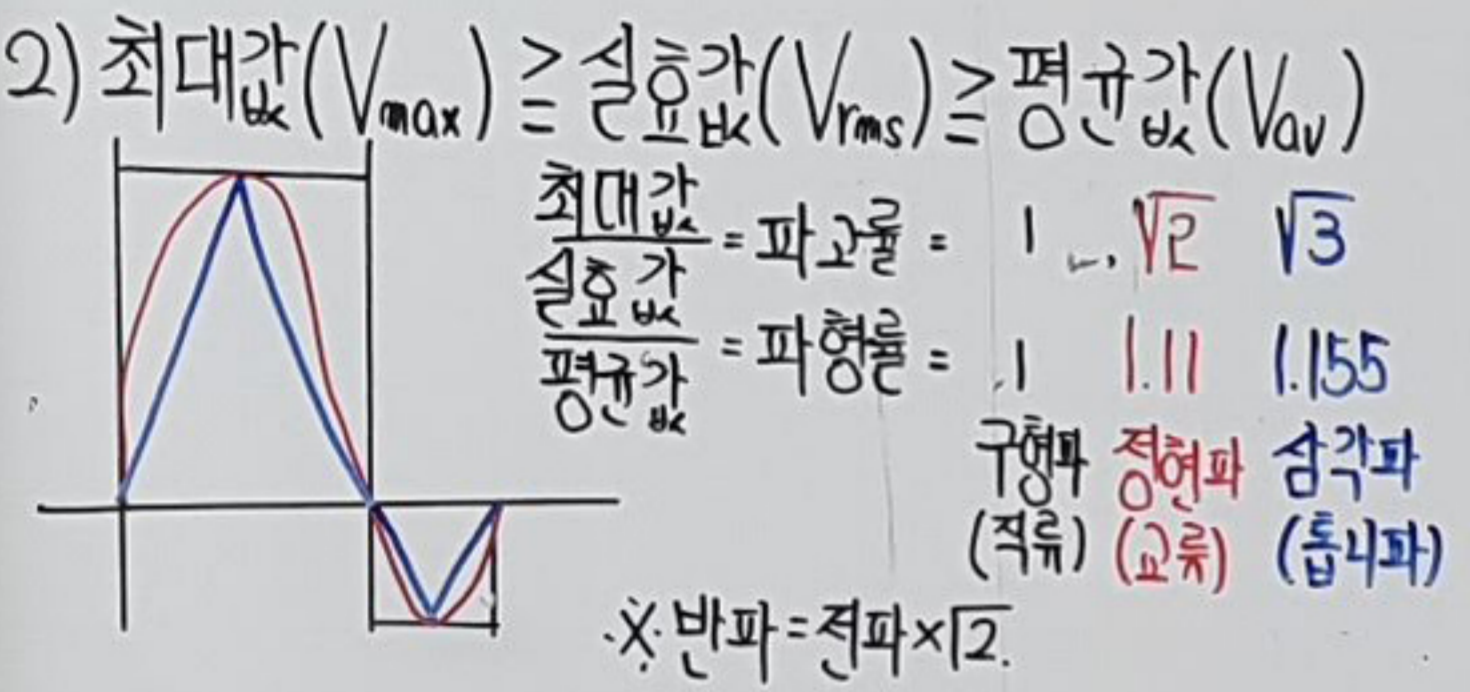 2) 최대값(Vmax) ≥ 실효값(Vrms) ≥ 평균값(Vav)
최대값/실효값 = 파고률 = 1 √2 √3
실효값/평균값 = 파형률 = 1 1.11 1.155
구형파 정현파 삼각파
(직류) (교류) (톱니파)
※ 반파=전파×√2.